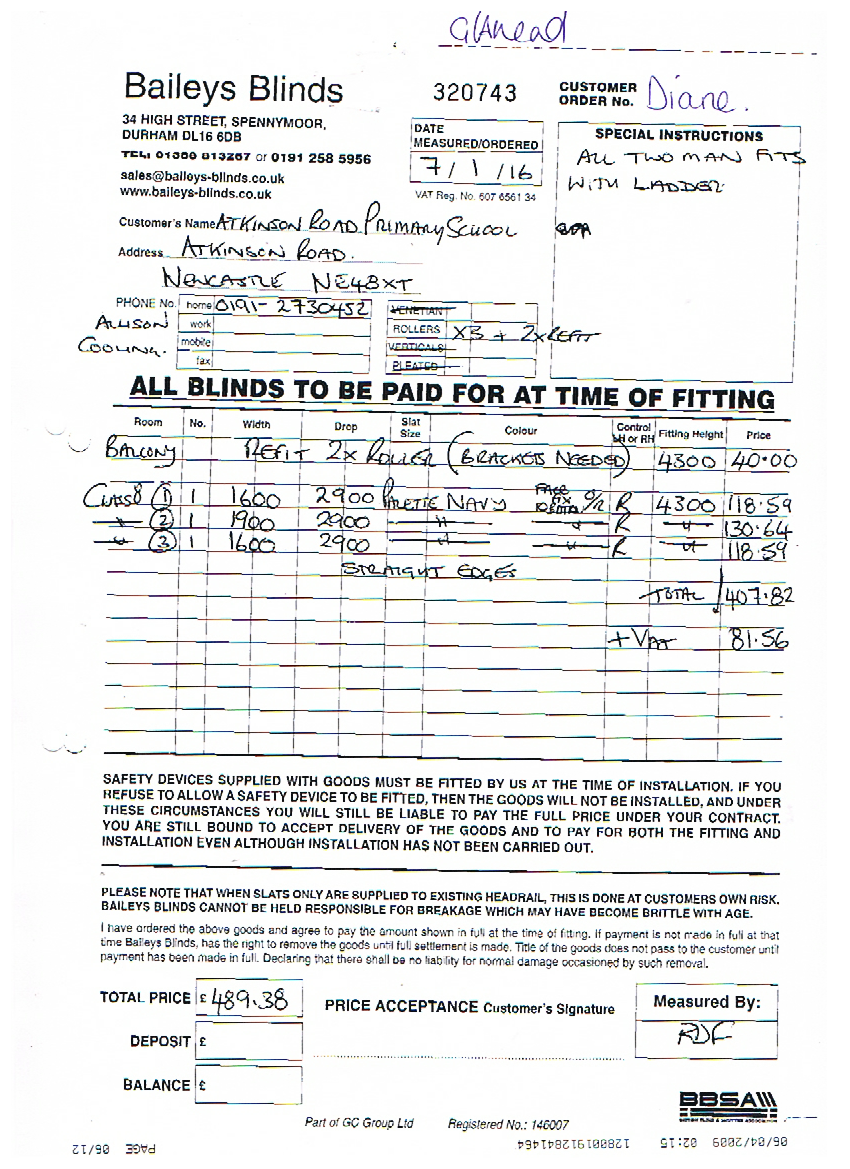 Baileys Blinds
34 HIGH STREET, SPENNYMOOR,
DURHAM DL16 6DB
TEL: 01388 813267 or 0191 258 5956
sales@baileys-blinds.co.uk
www.baileys-blinds.co.uk
320743
DATE
MEASURED/ORDERED
7/1/16
VAT Reg. No. 607 6561 34
CUSTOMER
ORDER No. Diane.
SPECIAL INSTRUCTIONS
ALL TWO MAN FITS
WITH LADDER
Customer's Name ATKINSON ROAD PRIMARY SCHOOL
Address ATKINSON ROAD.
NEWCASTLE NE48XT
PHONE No. home 0191-2730452
work
mobile
fax
ALLISON
COOLING.
VENETIAN
ROLLERS X3 + 2x REFIT
VERTICALS
PLEATED
ALL BLINDS TO BE PAID FOR AT TIME OF FITTING
Room No. Width Drop Slat Size Colour Control LH or RH Fitting Height Price
BALCONY REFIT 2x ROLLER (BRACKETS NEEDED) 4300 40.00
CLASS 8 (1) 1 1600 2900 PALETTE NAVY FACE FIX O/R R 4300 118.59
" (2) 1 1900 2900 " " R " 130.64
" (3) 1 1600 2900 " " R " 118.59
STRAIGHT EDGES
TOTAL 407.82
+ VAT 81.56
SAFETY DEVICES SUPPLIED WITH GOODS MUST BE FITTED BY US AT THE TIME OF INSTALLATION. IF YOU
REFUSE TO ALLOW A SAFETY DEVICE TO BE FITTED, THEN THE GOODS WILL NOT BE INSTALLED, AND UNDER
THESE CIRCUMSTANCES YOU WILL STILL BE LIABLE TO PAY THE FULL PRICE UNDER YOUR CONTRACT.
YOU ARE STILL BOUND TO ACCEPT DELIVERY OF THE GOODS AND TO PAY FOR BOTH THE FITTING AND
INSTALLATION EVEN ALTHOUGH INSTALLATION HAS NOT BEEN CARRIED OUT.
PLEASE NOTE THAT WHEN SLATS ONLY ARE SUPPLIED TO EXISTING HEADRAIL, THIS IS DONE AT CUSTOMERS OWN RISK.
BAILEYS BLINDS CANNOT BE HELD RESPONSIBLE FOR BREAKAGE WHICH MAY HAVE BECOME BRITTLE WITH AGE.
I have ordered the above goods and agree to pay the amount shown in full at the time of fitting. If payment is not made in full at that
time Baileys Blinds, has the right to remove the goods until full settlement is made. Title of the goods does not pass to the customer until
payment has been made in full. Declaring that there shall be no liability for normal damage occasioned by such removal.
TOTAL PRICE £ 489.38
DEPOSIT £
BALANCE £
PRICE ACCEPTANCE Customer's Signature
Measured By:
RDF
BBSA
Part of GC Group Ltd Registered No.: 146007
06/04/2009 02:15 12800191281464 PAGE 06/12